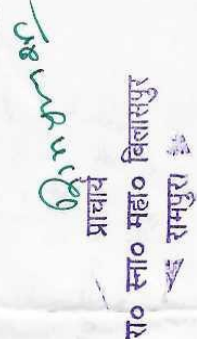 प्राचार्य
रा० स्ना० महा० बिलासपुर
रामपुर।